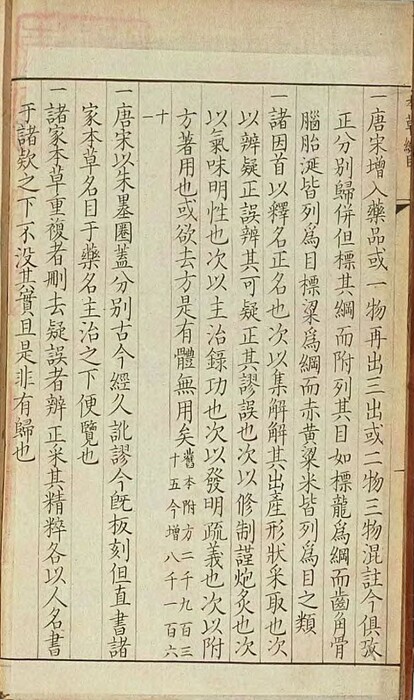 一唐宋增入藥品或一物再出三出或二物三物混註今俱攷
正分別歸併但標其綱而附列其目如標龍爲綱而齒角骨
腦胎涎皆列爲目標粱爲綱而赤黄粱米皆列爲目之類
一諸因首以釋名正名也次以集解解其出產形狀采取也次
以辨疑正誤辨其可疑正其謬誤也次以修制謹炮炙也次
以氣味明性也次以主治錄功也次以發明疏義也次以附
方著用也或欲去方是有體無用矣舊本附方二千九百三十五今增八千一百六
十一
一唐宋以朱墨圈蓋分別古今經久訛謬今旣板刻但直書諸
家本草名目于藥名主治之下便覽也
一諸家本草重複者刪去疑誤者辨正采其精粹各以人名書
于諸欵之下不没其實且是非有歸也